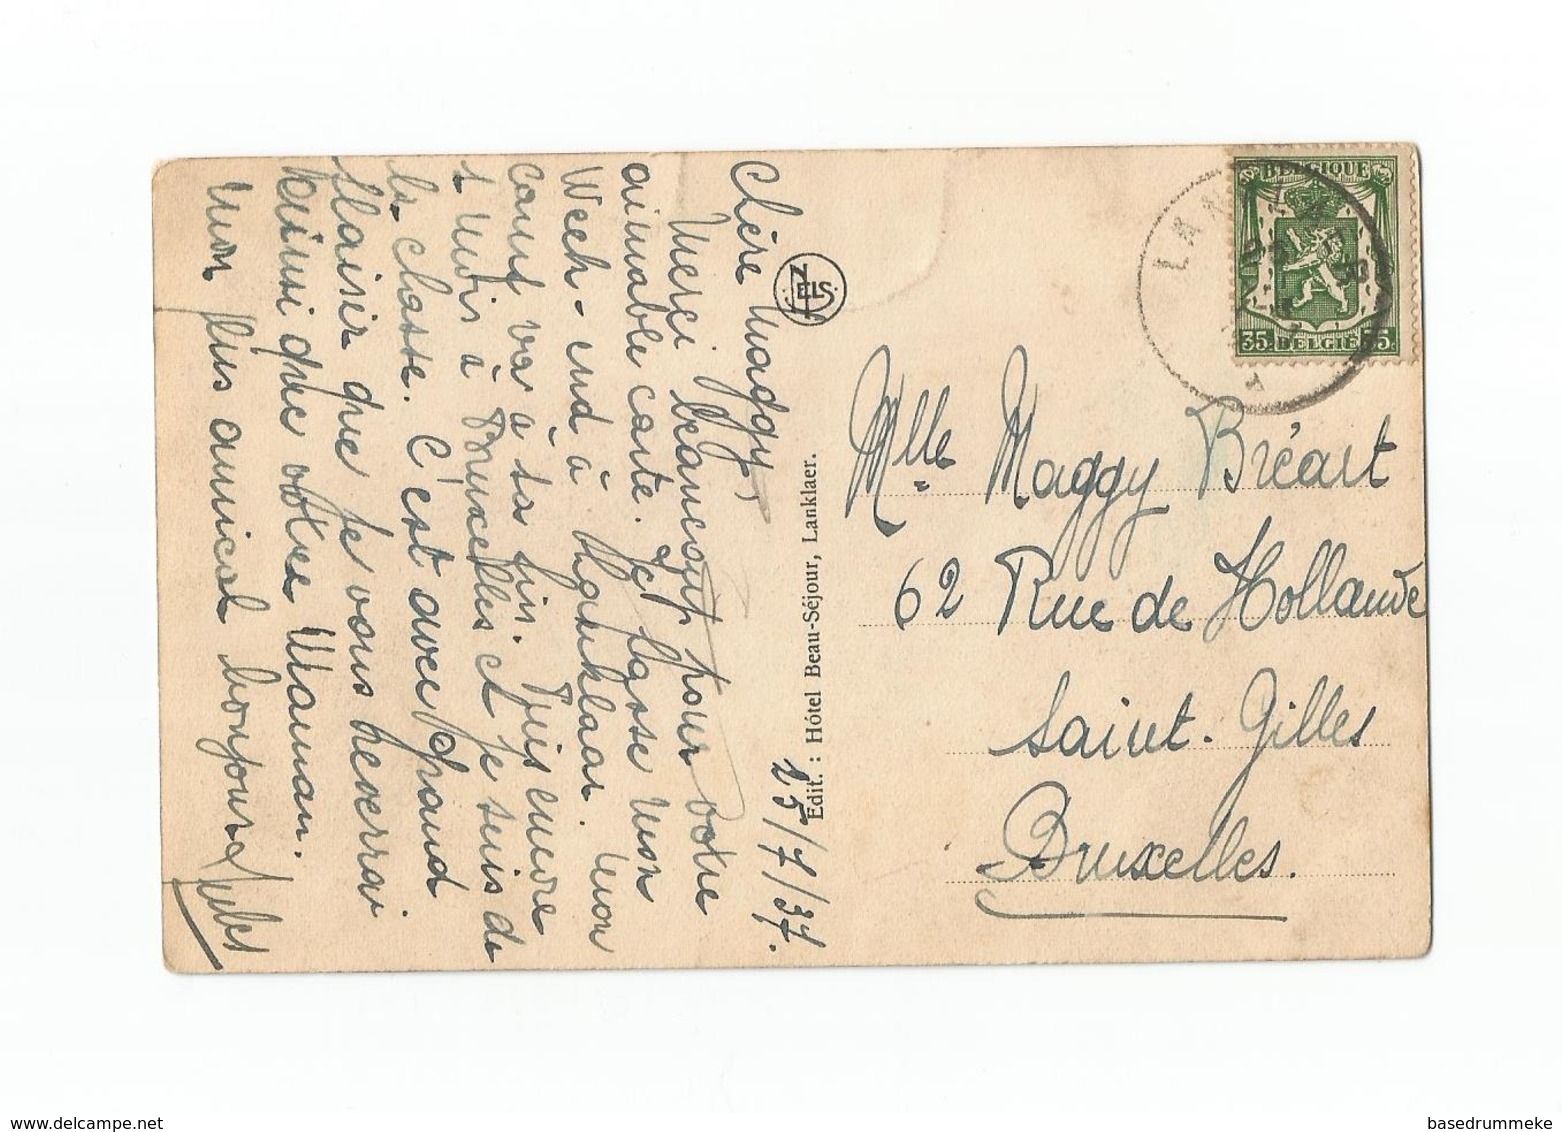 25/7/37.
Chère Maggy,
Merci beaucoup pour votre
aimable carte. Je passe mon
Week-end à Lanklaar. Mon
camp va à sa fin. Puis encore
1 mois à Bruxelles et je suis de
la classe. C'est avec grand
plaisir que je vous reverrai
ainsi que votre Maman.
Mon plus amical bonjour
NELS
Edit. : Hôtel Beau-Séjour, Lanklaer.
BELGIQUE
35c BELGIË 35c
Mlle Maggy Bréart
62 Rue de Hollande
Saint-Gilles
Bruxelles.
delcampe.net
basedrummeke